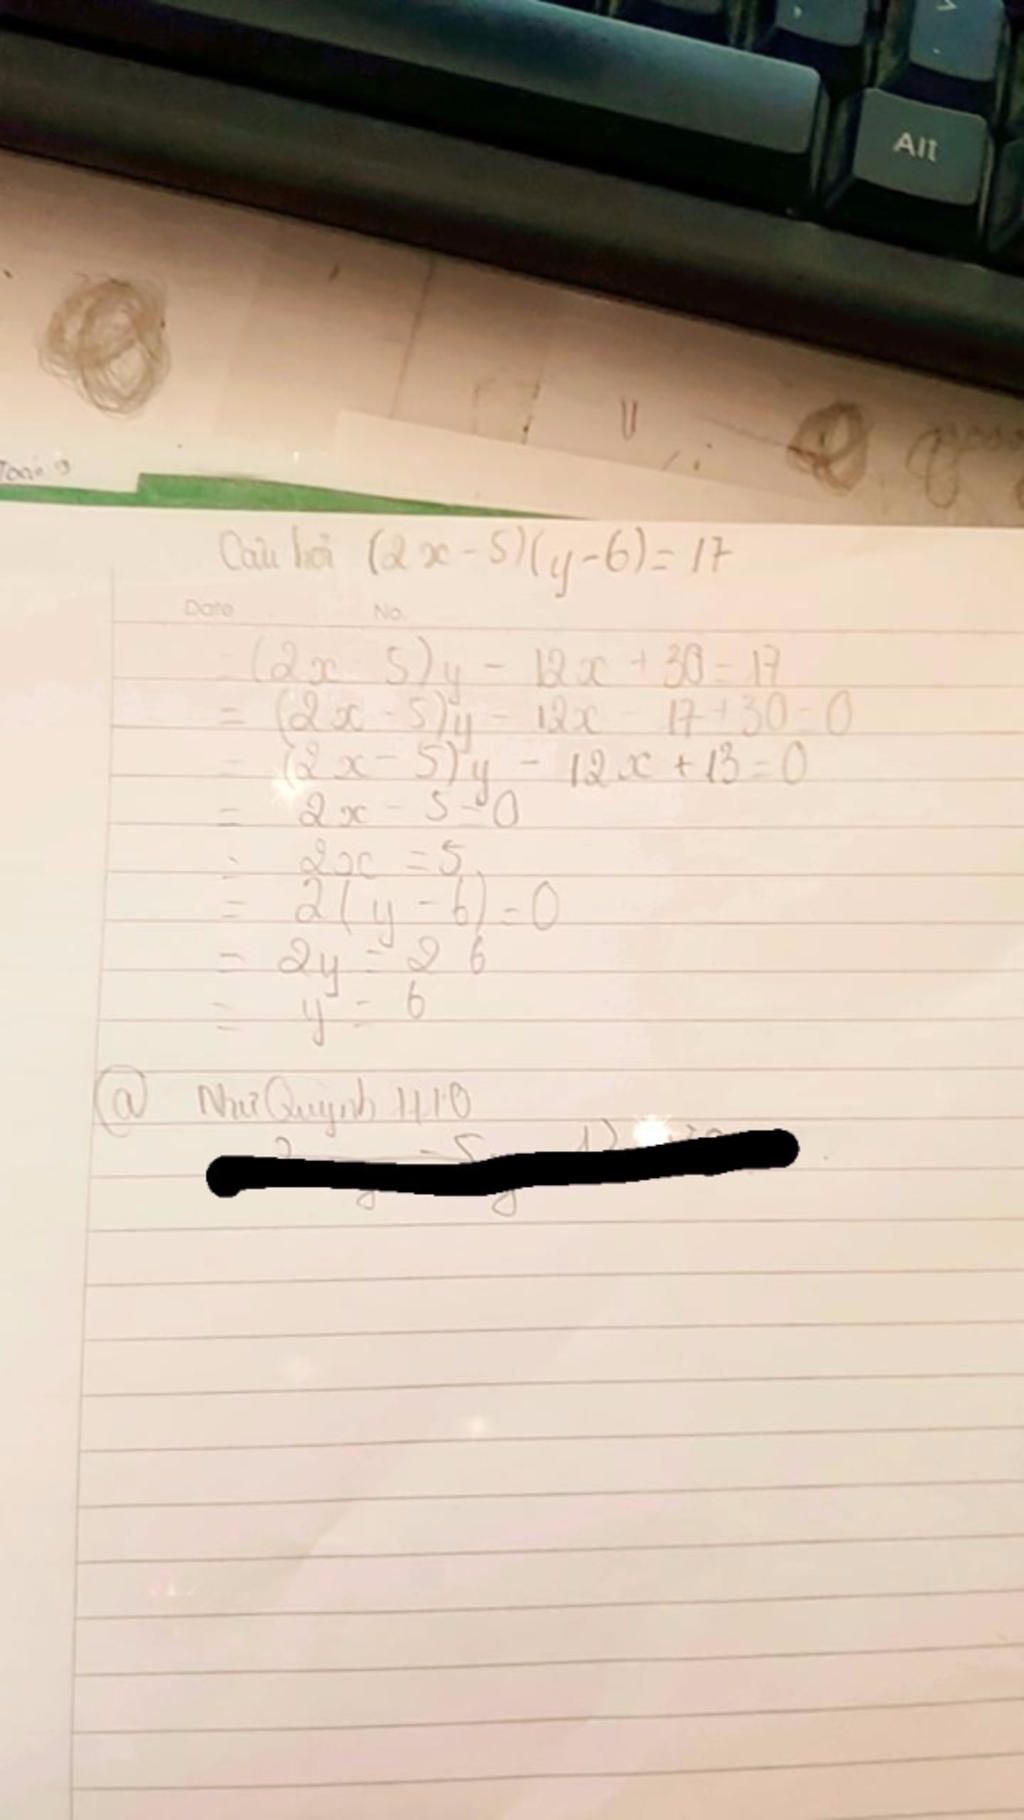 Alt
Câu hỏi (2x-5)(y-6)=17
Date No.
(2x 5)y - 12x + 30 = 17
= (2x - 5)y - 12x - 17 + 30 = 0
= (2x - 5)y - 12x + 13 = 0
= 2x - 5 = 0
= 2x = 5
= 2(y - 6) = 0
= 2y = 2 6
= y = 6
@ NhưQuỳnh 1410